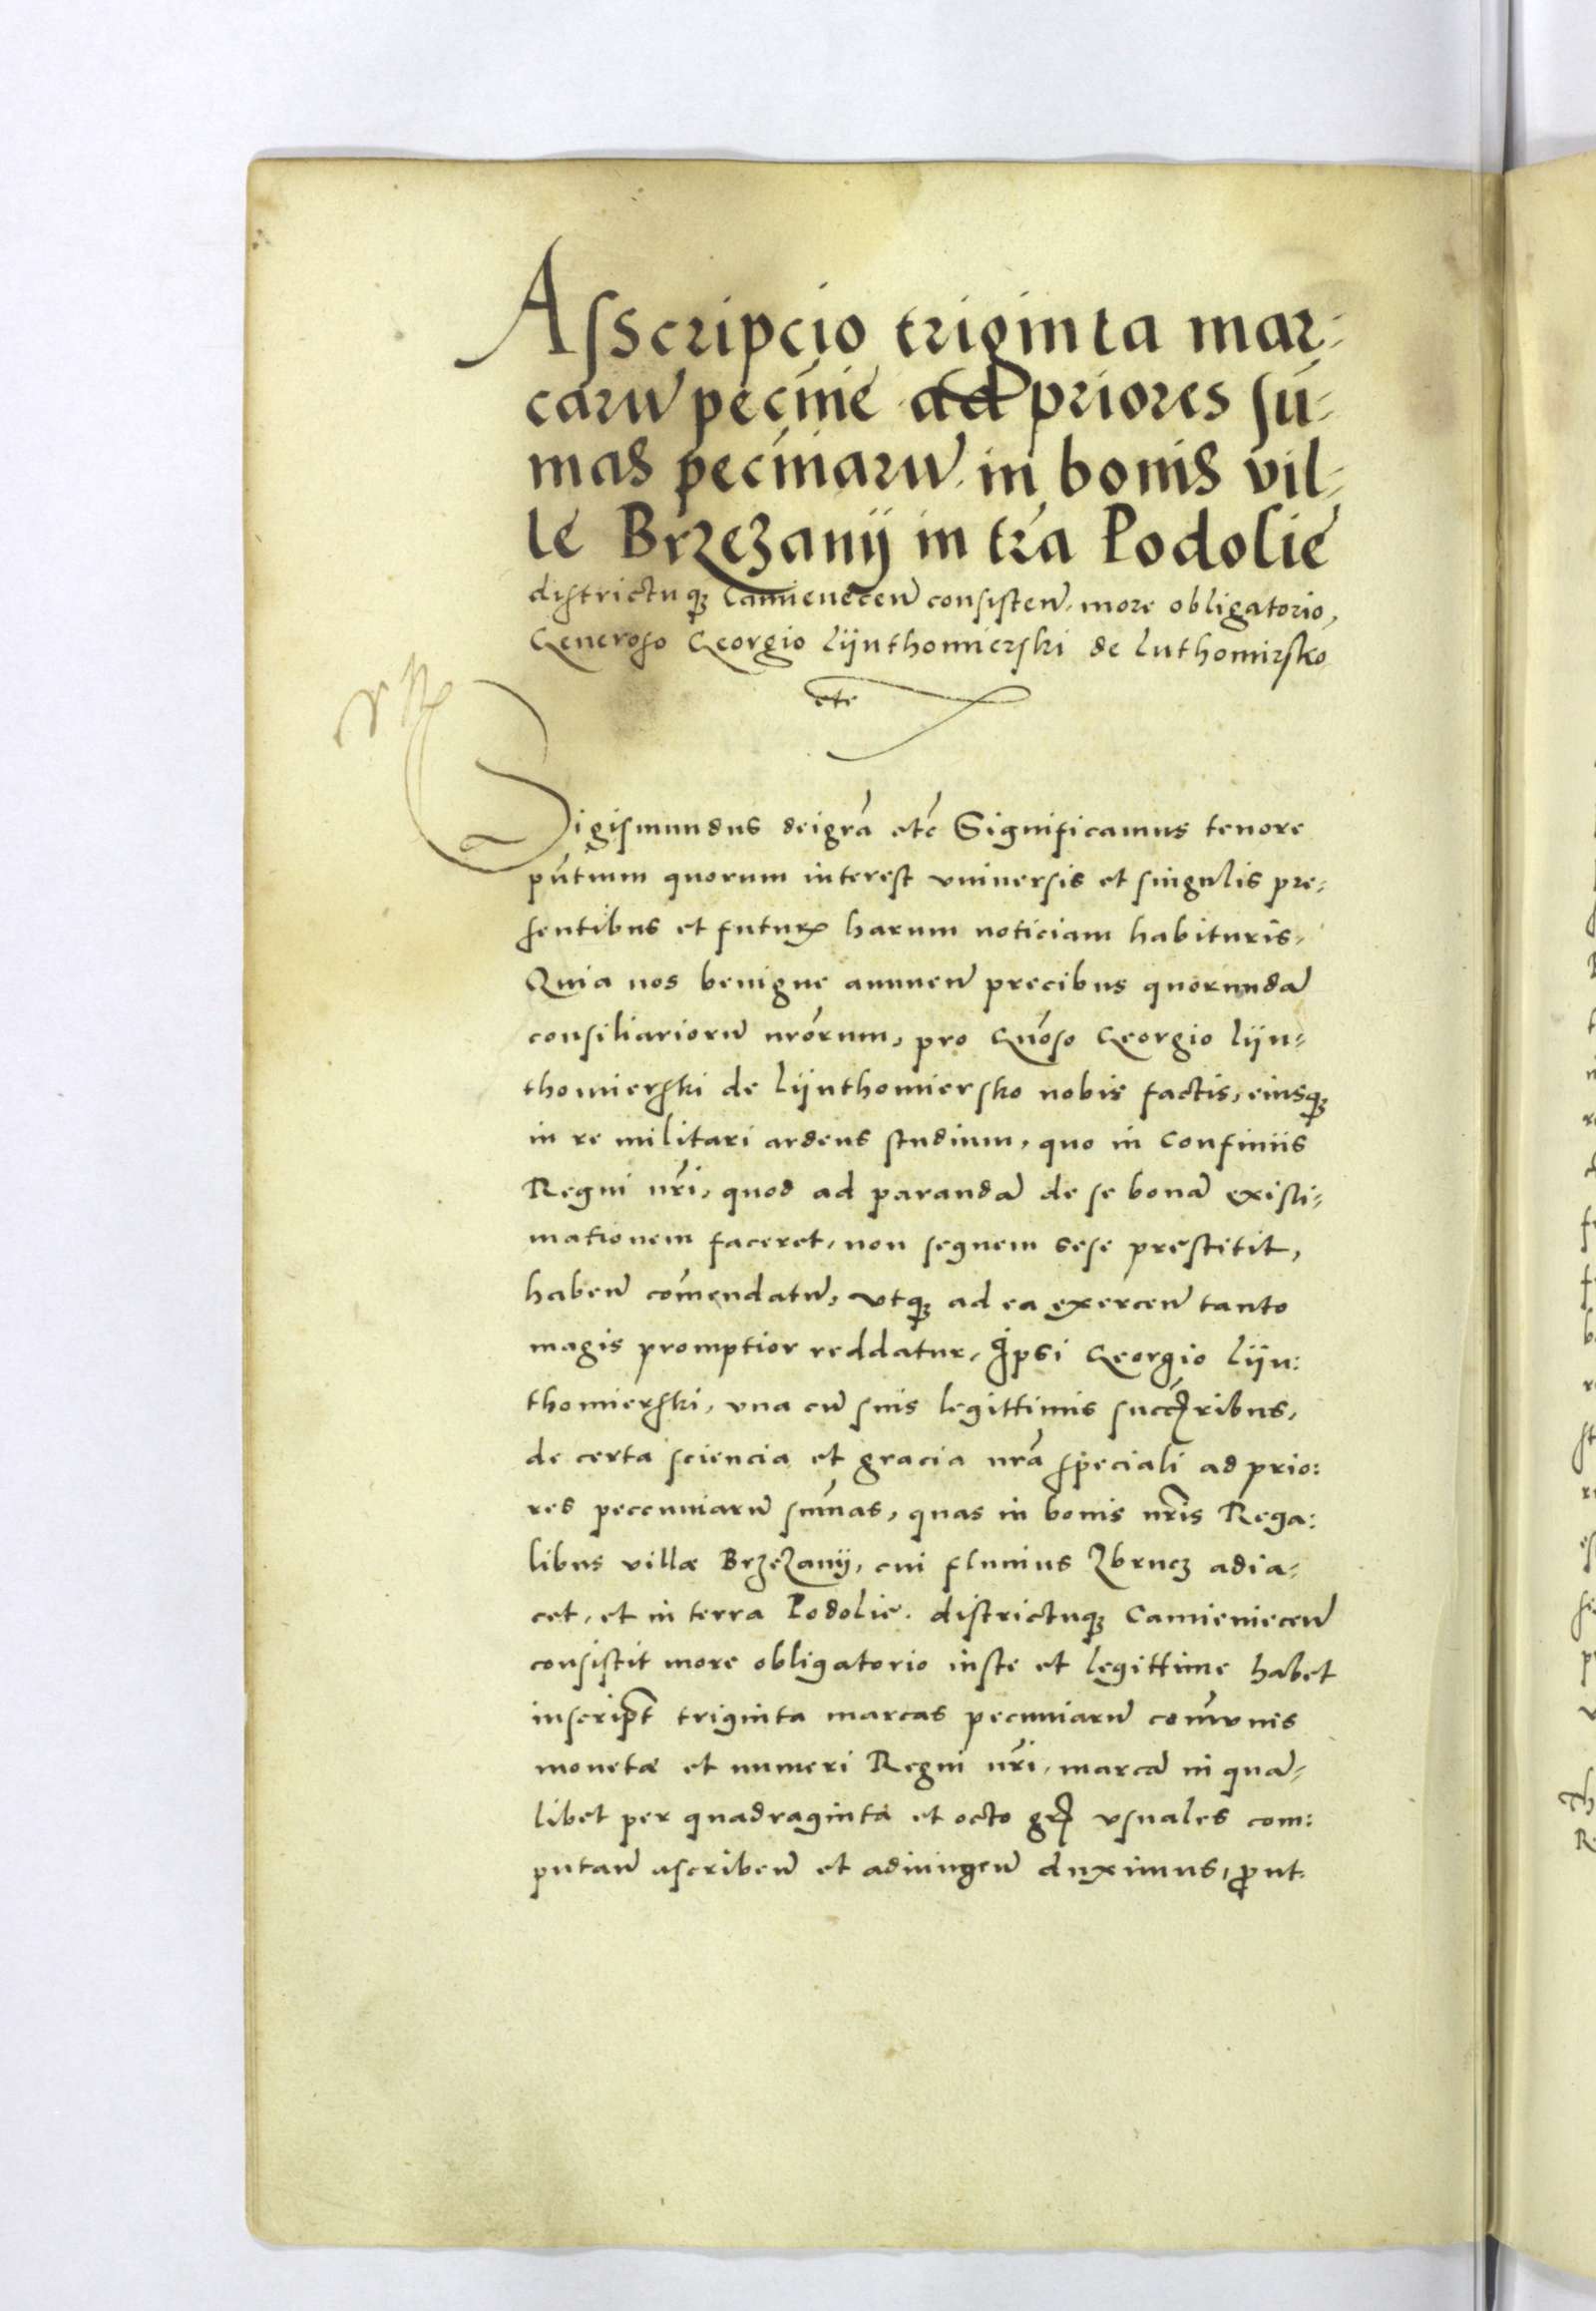 Asscripcio triginta mar-
carũ pecũie ad priores sũ-
mas pecũiarũ in bonis vil-
le Brzezanij in tr̃a Podolie
districtuqꝫ Camieneceñ consisteñ more obligatorio,
Generoso Georgio lijuthomierski de luthomirsko
etc
Sigismundus dei gr̃a etc̃ Significamus tenore
pñtium quorum interest vniuersis et singulis pre-
sentibus et futurꝭ harum noticiam habituris,
Quia nos benigne annueñ precibus quorundã
consiliariorũ nr̃orum, pro Gñoso Georgio lijn-
thomierski de lijuthomiersko nobis factis, eiusqꝫ
in re militari ardens studium, quo in confiniis
Regni nr̃i, quod ad parandã de se bonã existi-
mationem faceret, non segnem sese prestitit,
habeñ com̃endatũ, vtqꝫ ad ea exerceñ tanto
magis promptior reddatur, Ipsi Georgio lijn:
thomierski, vna cũ suis legittimis succꝭribus,
de certa sciencia et gracia nr̃a speciali ad prio:
res peccuniarũ sum̃as, quas in bonis nr̃is Rega:
libus villæ Brzezanij, cui fluuius Zbrucz adia-
cet, et in terra Podolie. districtuqꝫ Camienieceñ
consistit more obligatorio iuste et legittime habet
inscript̃ triginta marcas pecuniarũ com̃vnis
monetæ et numeri Regni nr̃i, marcã in quã-
libet per quadraginta et octo grꝭ vsuales com:
putañ ascribeñ et adiungeñ duximus, ꝓut